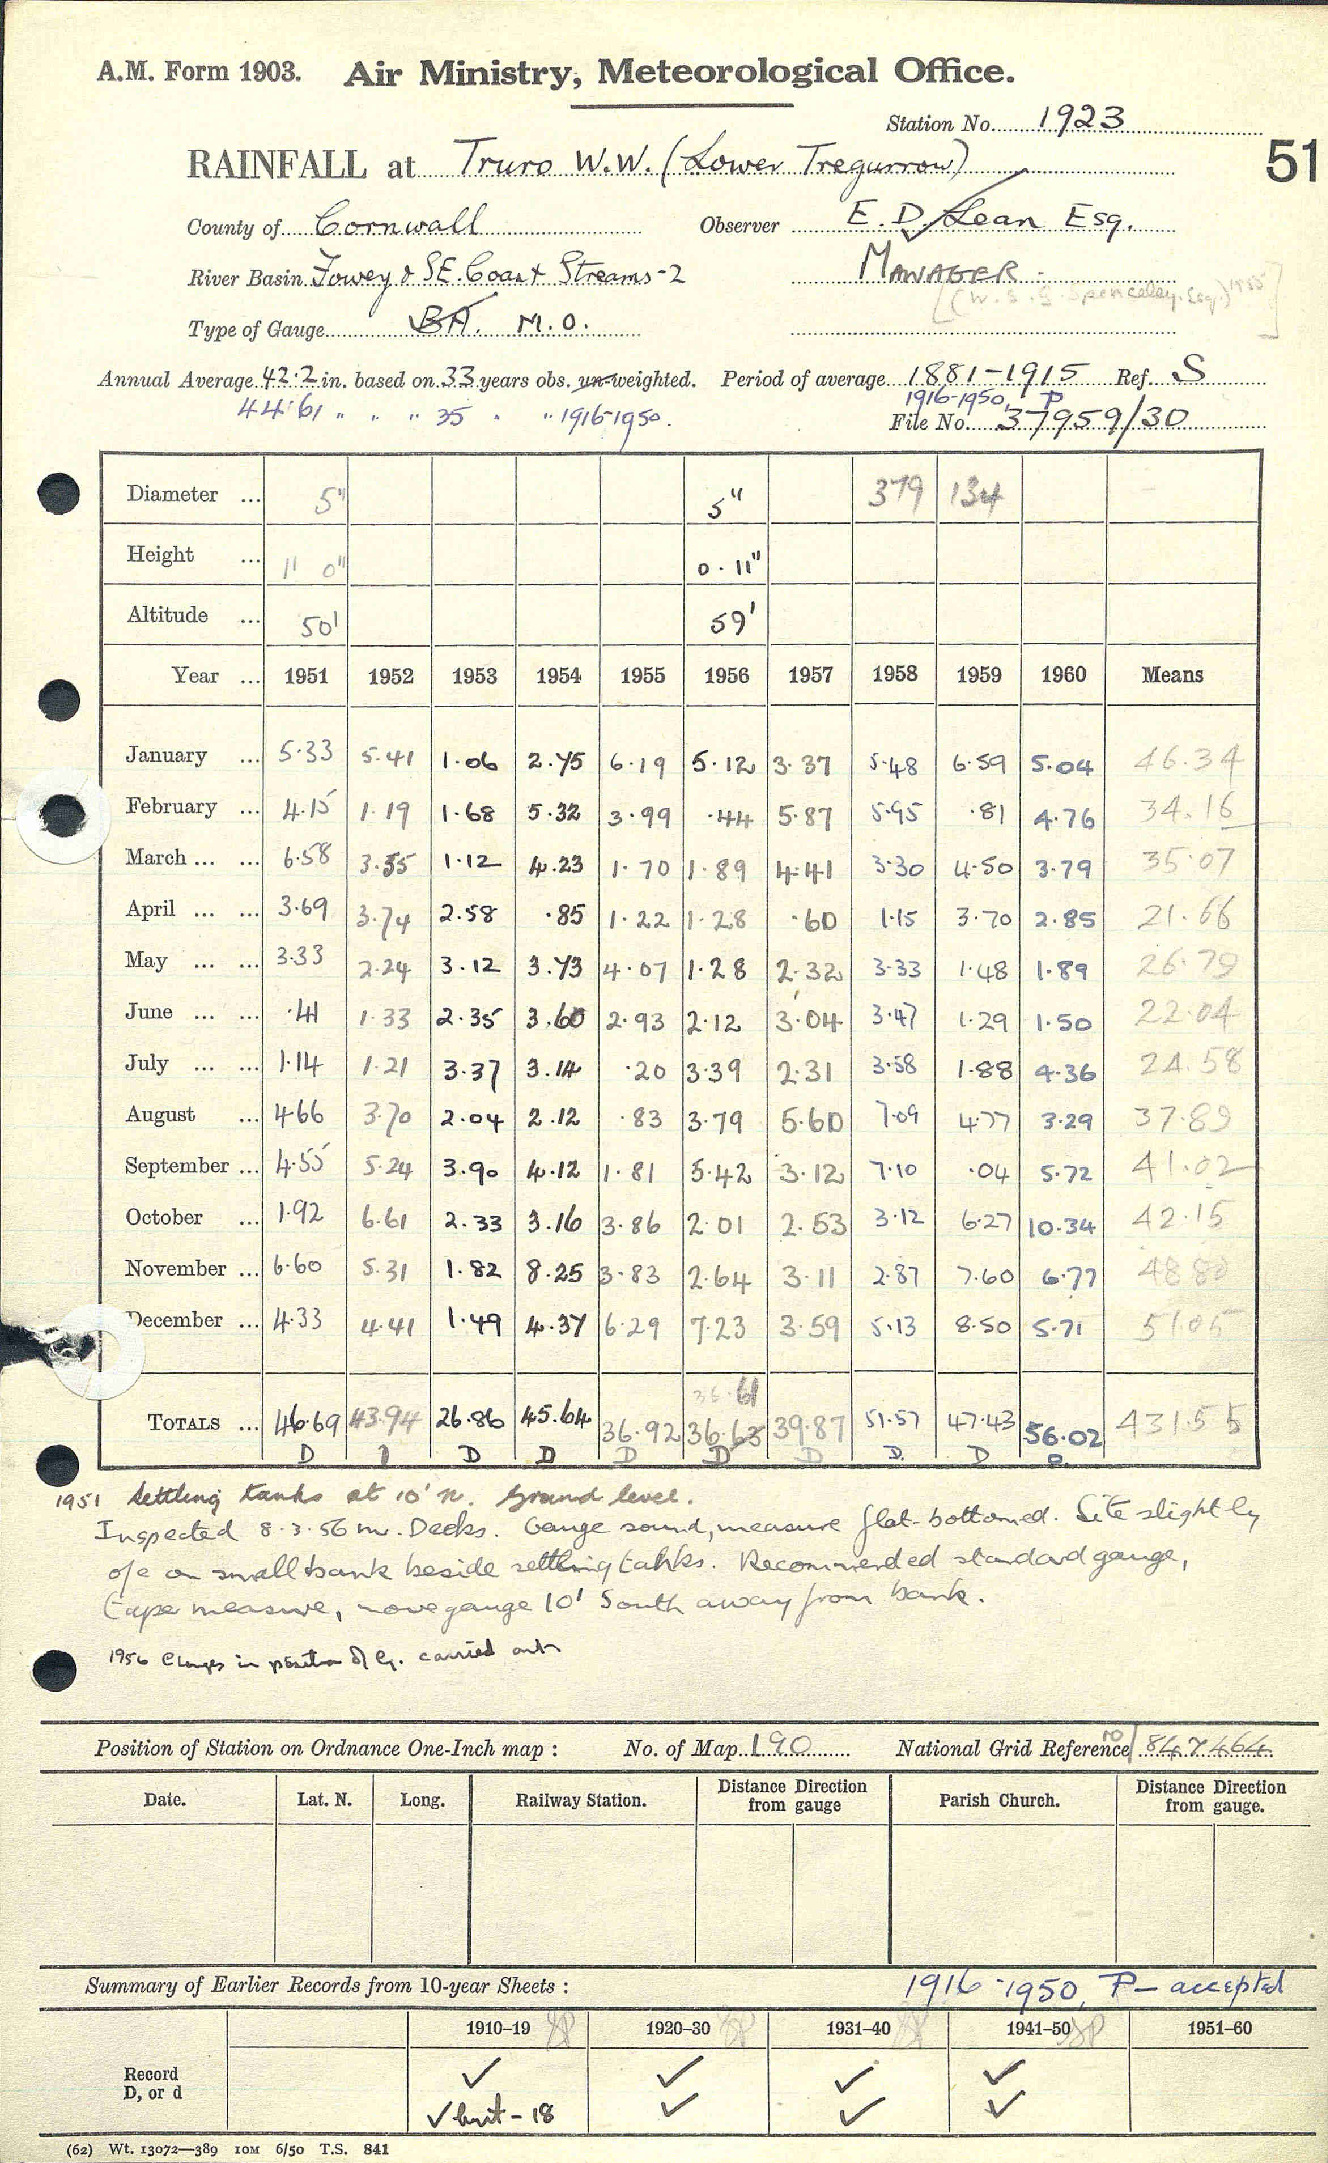 A.M. Form 1903. Air Ministry, Meteorological Office.
Station No. 1923
RAINFALL at Truro W.W. (Lower Tregurrow)
51
County of Cornwall Observer E. D. Lean Esq.
River Basin Fowey & SE. Coast Streams-2 MANAGER
(W. S. G. Spenceley. Esq.) 1955
Type of Gauge BA. M.O.
Annual Average 42.2 in. based on 33 years obs. un-weighted. Period of average 1881-1915 Ref. S
44.61 " " " 35 " " 1916-1950. 1916-1950, P
File No. 37959/30
Diameter ... 5" 5" 379 134
Height ... 1' 0" 0. 11"
Altitude ... 50' 59'
Year ... 1951 1952 1953 1954 1955 1956 1957 1958 1959 1960 Means
January ... 5.33 5.41 1.06 2.75 6.19 5.12 3.37 5.48 6.59 5.04 46.34
February ... 4.15 1.19 1.68 5.32 3.99 .44 5.87 5.95 .81 4.76 34.16
March ... ... 6.58 3.35 1.12 4.23 1.70 1.89 4.41 3.30 4.50 3.79 35.07
April ... ... 3.69 3.74 2.58 .85 1.22 1.28 .60 1.15 3.70 2.85 21.66
May ... ... 3.33 2.24 3.12 3.73 4.07 1.28 2.32 3.33 1.48 1.89 26.79
June ... ... .41 1.33 2.35 3.60 2.93 2.12 3.04 3.47 1.29 1.50 22.04
July ... ... 1.14 1.21 3.37 3.14 .20 3.39 2.31 3.58 1.88 4.36 24.58
August ... 4.66 3.70 2.04 2.12 .83 3.79 5.60 7.09 4.77 3.29 37.89
September ... 4.55 5.24 3.90 4.12 1.81 5.42 3.12 7.10 .04 5.72 41.02
October ... 1.92 6.61 2.33 3.16 3.86 2.01 2.53 3.12 6.27 10.34 42.15
November ... 6.60 5.31 1.82 8.25 3.83 2.64 3.11 2.87 7.60 6.77 48.80
December ... 4.33 4.41 1.49 4.37 6.29 7.23 3.59 5.13 8.50 5.71 51.05
36.61
TOTALS ... 46.69 43.94 26.86 45.64 36.92 36.63 39.87 51.57 47.43 56.02 431.55
D D D D D D D D D
1951 Settling tanks at 10' N. Ground level.
Inspected 8.3.56 Mr. Decks. Gauge sound, measure flat-bottomed. Site slightly
o/e on small bank beside settling tanks. Recommended standard gauge,
tape measure, move gauge 10' South away from bank.
1956 Changes in position of G. carried out
Position of Station on Ordnance One-Inch map : No. of Map 190 National Grid Reference 10/847464
Date. Lat. N. Long. Railway Station. Distance Direction from gauge Parish Church. Distance Direction from gauge.
Summary of Earlier Records from 10-year Sheets : 1916-1950, P- accepted
1910–19 1920–30 1931–40 1941–50 1951–60
Record ✓ ✓ ✓ ✓
D, or d ✓ but - 18 ✓ ✓ ✓
(62) Wt. 13072—389 10M 6/50 T.S. 841